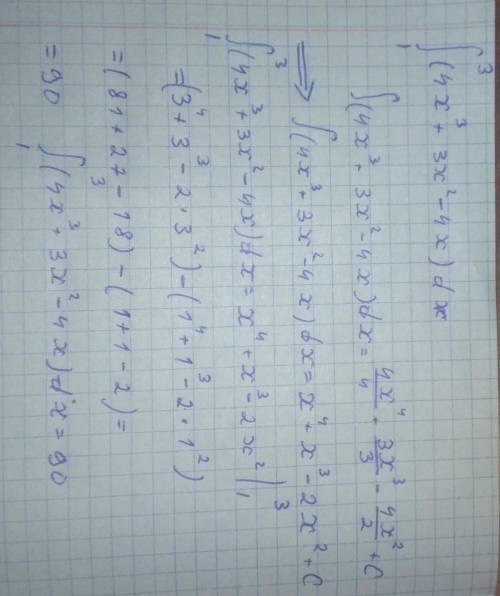 ∫₁³ (4x³ + 3x² - 4x) dx
∫(4x³ + 3x² - 4x) dx = 4x⁴/4 + 3x³/3 - 4x²/2 + C
⟹ ∫(4x³ + 3x² - 4x) dx = x⁴ + x³ - 2x² + C
∫₁³ (4x³ + 3x² - 4x) dx = x⁴ + x³ - 2x² |₁³
= (3⁴ + 3³ - 2·3²) - (1⁴ + 1³ - 2·1²)
= (81 + 27 - 18) - (1 + 1 - 2) =
= 90 ∫₁³ (4x³ + 3x² - 4x) dx = 90